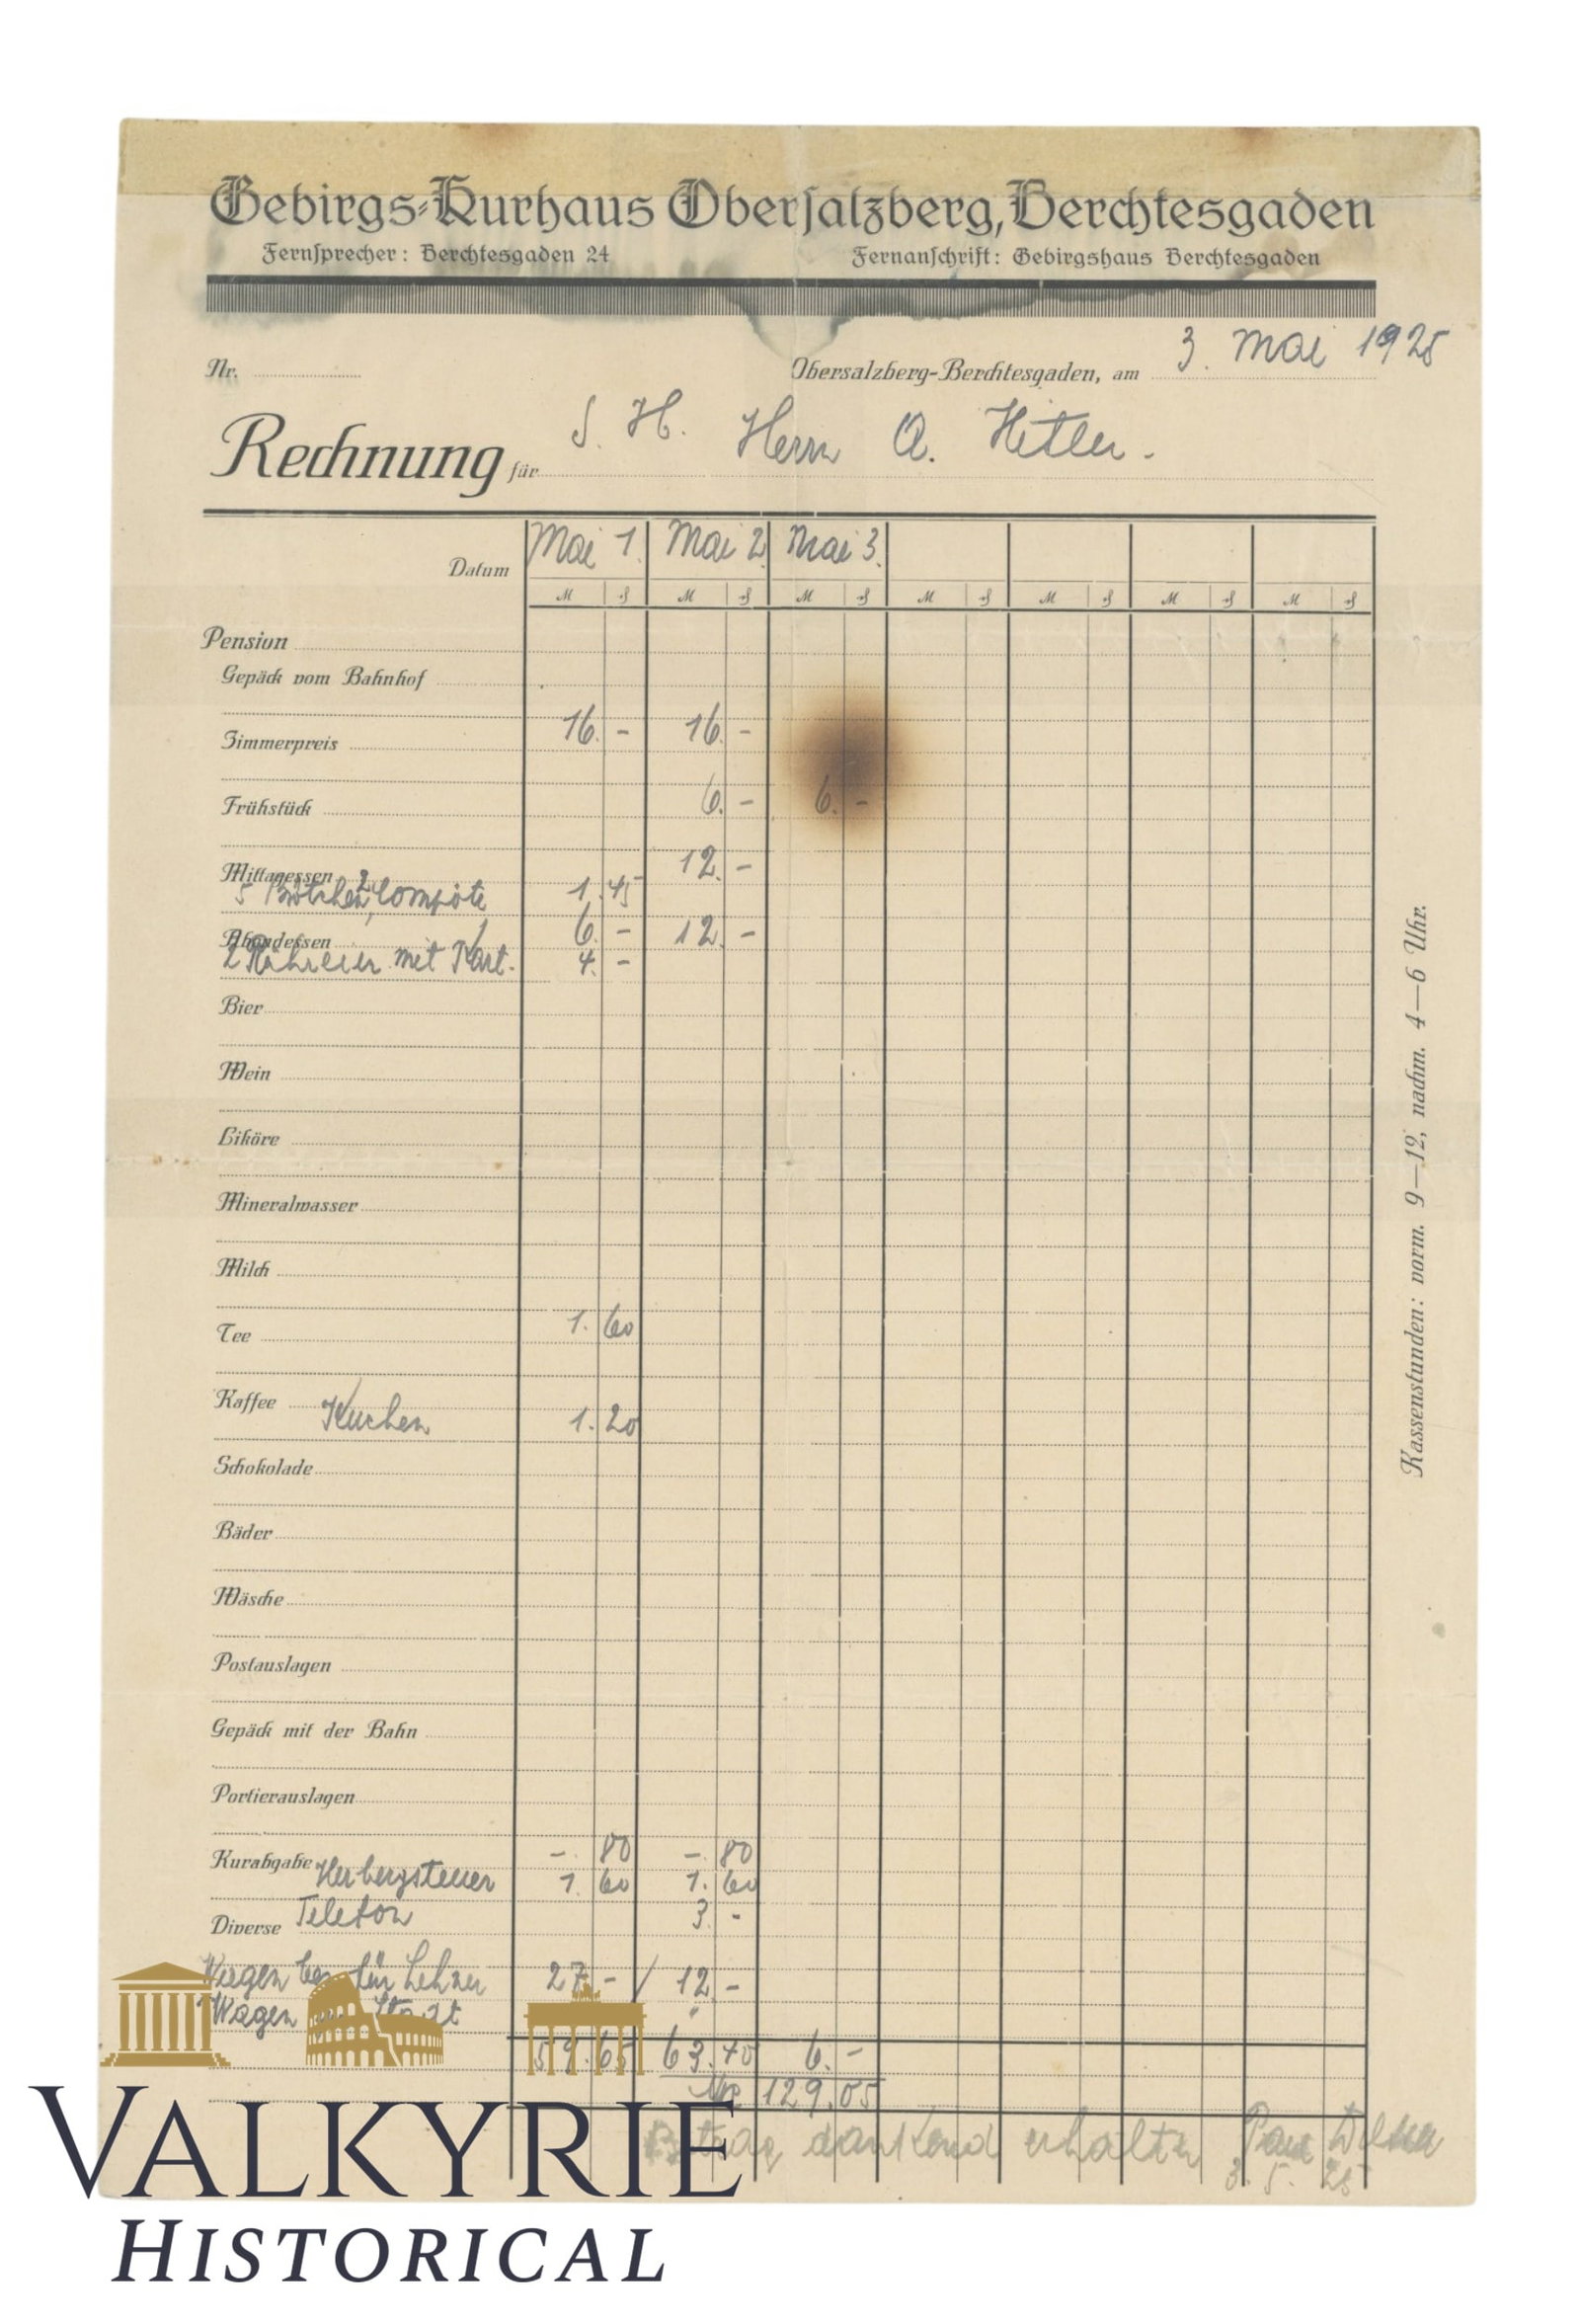 Gebirgs-Kurhaus Obersalzberg, Berchtesgaden
Fernsprecher: Berchtesgaden 24 Fernanschrift: Gebirgshaus Berchtesgaden
Nr. Obersalzberg-Berchtesgaden, am 3. Mai 1925
Rechnung für S. H. Herrn A. Hitler.
Datum Mai 1. Mai 2. Mai 3.
M ₰ M ₰ M ₰ M ₰ M ₰ M ₰ M ₰
Pension
Gepäck vom Bahnhof
Zimmerpreis 16. - 16. -
Frühstück 6. - 6. -
Mittagessen 12. -
5 Brötchen, 2 Compote 1.45
Abendessen 6. - 12. -
2 Rühreier mit Kart. 4. -
Bier
Wein
Liköre
Mineralwasser
Milch
Tee 1. 60
Kaffee Kuchen 1. 20
Schokolade
Bäder
Wäsche
Postauslagen
Gepäck mit der Bahn
Portierauslagen
Kurabgabe -. 80 -. 80
Herbergsteuer 1. 60 1. 60
Diverse Telefon 3. -
Wagen Lehner 27. - / 12. -
Wagen Stadt
59.65 63.40 6. -
Mk 129.05
Betrag dankend erhalten
3. 5. 25
Kassenstunden: vorm. 9—12, nachm. 4—6 Uhr.
VALKYRIE
HISTORICAL